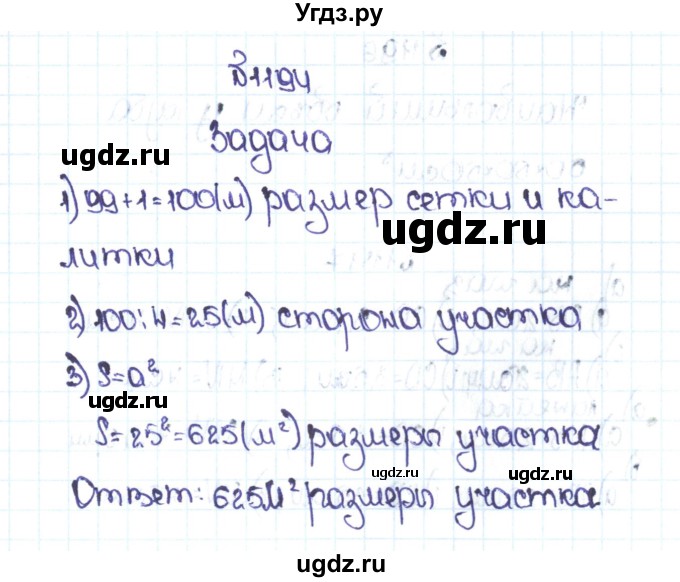 Угдз.ру
№1194
Задача
ugdz.ru
1) 99+1=100(м) размер сетки и ка-
ugdz.ru
литки
2) 100:4=25(м) сторона участка
3) S=a²
ugdz.ru
S=25²=625(м²) размеры участка
ugdz.ru
ugdz.ru
Ответ: 625м² размеры участка
ugdz.ru